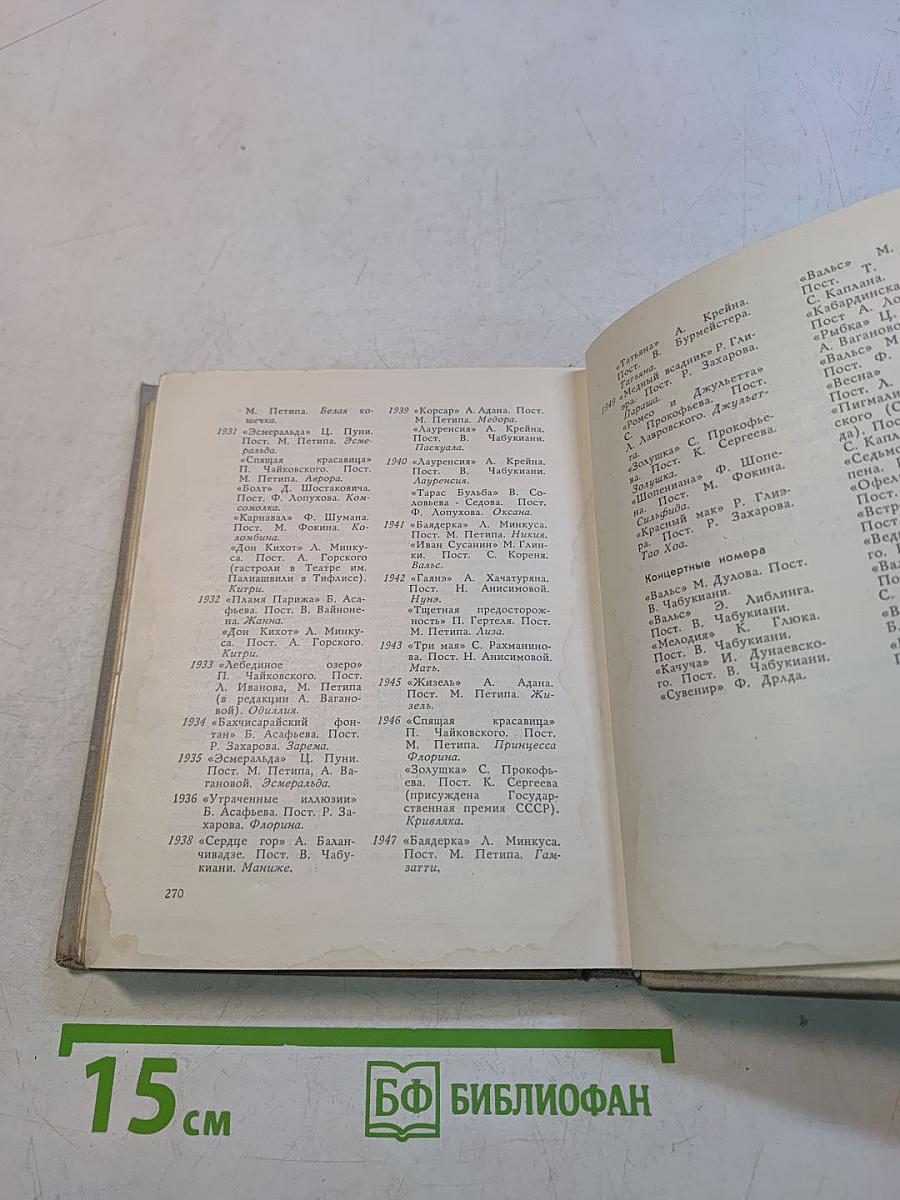 М. Петипа. Белая ко-
шечка.
1931 «Эсмеральда» Ц. Пуни.
Пост. М. Петипа. Эсме-
ральда.
«Спящая красавица»
П. Чайковского. Пост.
М. Петипа. Аврора.
«Болт» Д. Шостаковича.
Пост. Ф. Лопухова. Ком-
сомолка.
«Карнавал» Ф. Шумана.
Пост. М. Фокина. Ко-
ломбина.
«Дон Кихот» Л. Минку-
са. Пост. А. Горского
(гастроли в Театре им.
Палиашвили в Тифлисе).
Китри.
1932 «Пламя Парижа» Б. Аса-
фьева. Пост. В. Вайноне-
на. Жанна.
«Дон Кихот» Л. Минку-
са. Пост. А. Горского.
Китри.
1933 «Лебединое озеро»
П. Чайковского. Пост.
Л. Иванова, М. Петипа
(в редакции А. Вагано-
вой). Одиллия.
1934 «Бахчисарайский фон-
тан» Б. Асафьева. Пост.
Р. Захарова. Зарема.
1935 «Эсмеральда» Ц. Пуни.
Пост. М. Петипа, А. Ва-
гановой. Эсмеральда.
1936 «Утраченные иллюзии»
Б. Асафьева. Пост. Р. За-
харова. Флорина.
1938 «Сердце гор» А. Балан-
чивадзе. Пост. В. Чабу-
киани. Маниже.
270
1939 «Корсар» А. Адана. Пост.
М. Петипа. Медора.
«Лауренсия» А. Крейна.
Пост. В. Чабукиани.
Паскуала.
1940 «Лауренсия» А. Крейна.
Пост. В. Чабукиани.
Лауренсия.
«Тарас Бульба» В. Со-
ловьева - Седова. Пост.
Ф. Лопухова. Оксана.
1941 «Баядерка» Л. Минкуса.
Пост. М. Петипа. Никия.
«Иван Сусанин» М. Глин-
ки. Пост. С. Кореня.
Вальс.
1942 «Гаянэ» А. Хачатуряна.
Пост. Н. Анисимовой.
Нунэ.
«Тщетная предосторож-
ность» П. Гертеля. Пост.
М. Петипа. Лиза.
1943 «Три мая» С. Рахманино-
ва. Пост. Н. Анисимовой.
Мать.
1945 «Жизель» А. Адана.
Пост. М. Петипа. Жи-
зель.
1946 «Спящая красавица»
П. Чайковского. Пост.
М. Петипа. Принцесса
Флорина.
«Золушка» С. Прокофь-
ева. Пост. К. Сергеева
(присуждена Государ-
ственная премия СССР).
Кривляка.
1947 «Баядерка» Л. Минкуса.
Пост. М. Петипа. Гам-
затти.
«Татьяна» А. Крейна.
Пост. В. Бурмейстера.
Татьяна.
1949 «Медный всадник» Р. Гли-
эра. Пост. Р. Захарова.
Параша.
«Ромео и Джульетта»
С. Прокофьева. Пост.
Л. Лавровского. Джульет-
та.
«Золушка» С. Прокофье-
ва. Пост. К. Сергеева.
Золушка.
«Шопениана» Ф. Шопе-
на. Пост. М. Фокина.
Сильфида.
«Красный мак» Р. Глиэ-
ра. Пост. Р. Захарова.
Тао Хоа.
Концертные номера
«Вальс» М. Дулова. Пост.
В. Чабукиани.
«Вальс» Э. Либлинга.
Пост. В. Чабукиани.
«Мелодия» К. Глюка.
Пост. В. Чабукиани.
«Качуча» И. Дунаевско-
го. Пост. В. Чабукиани.
«Сувенир» Ф. Дрдла.
«Вальс» М.
Пост. Т.
С. Каплана.
«Кабардинска
Пост А. Ло
«Рыбка» Ц.
А. Ваганово
«Вальс» М
Пост. Ф.
«Весна»
Пост. Л.
«Пигмали
ского (С
да). Пос
С. Капл
«Седьмо
пена. П
«Офел
Пост.
«Встр
Пост
«Вед
го. Г
«Вал
По
С.
«В
Б.
15 см
БФ БИБЛИОФАН